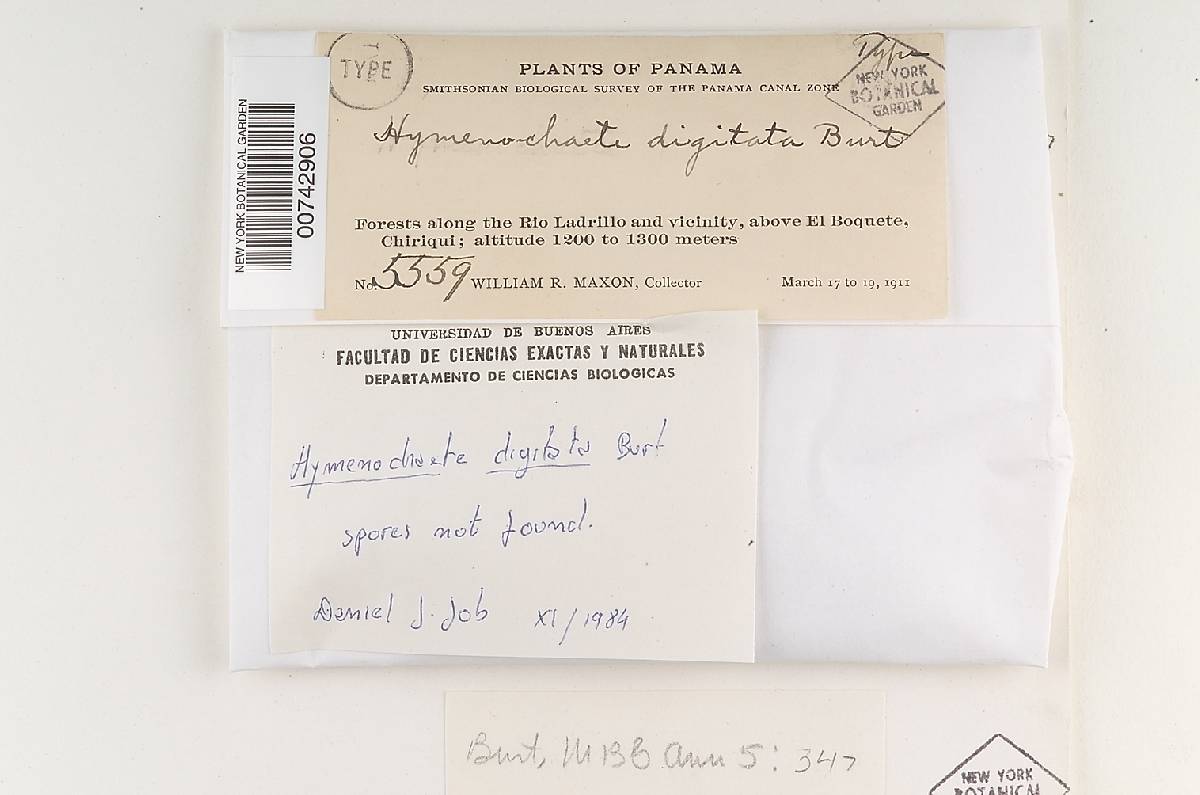 TYPE
Type
NEW YORK
BOTANICAL
GARDEN
PLANTS OF PANAMA
SMITHSONIAN BIOLOGICAL SURVEY OF THE PANAMA CANAL ZONE
Hymenochaete digitata Burt
Forests along the Rio Ladrillo and vicinity, above El Boquete,
Chiriqui; altitude 1200 to 1300 meters
No. 5559 WILLIAM R. MAXON, Collector March 17 to 19, 1911
NEW YORK BOTANICAL GARDEN
00742906
UNIVERSIDAD DE BUENOS AIRES
FACULTAD DE CIENCIAS EXACTAS Y NATURALES
DEPARTAMENTO DE CIENCIAS BIOLOGICAS
Hymenochaete digitata Burt
spores not found.
Daniel J. Job XI/1984
Burt, MBG Ann 5: 347
NEW YORK
BOTANICAL